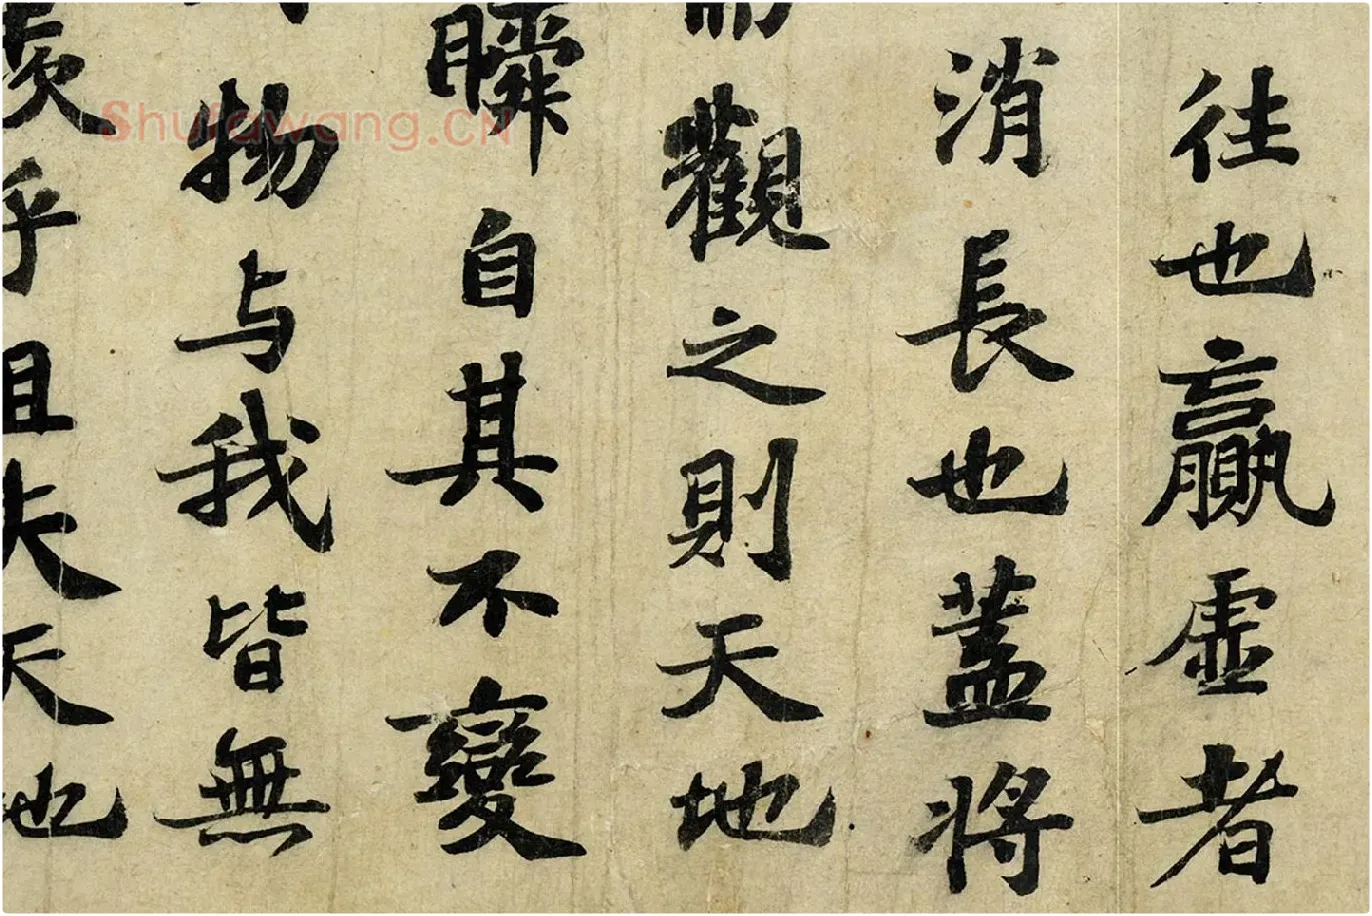 往也贏虛者
消長也蓋將
而觀之則天地
瞬自其不變
物与我皆無
羡乎且夫天地
Shufawang.CN